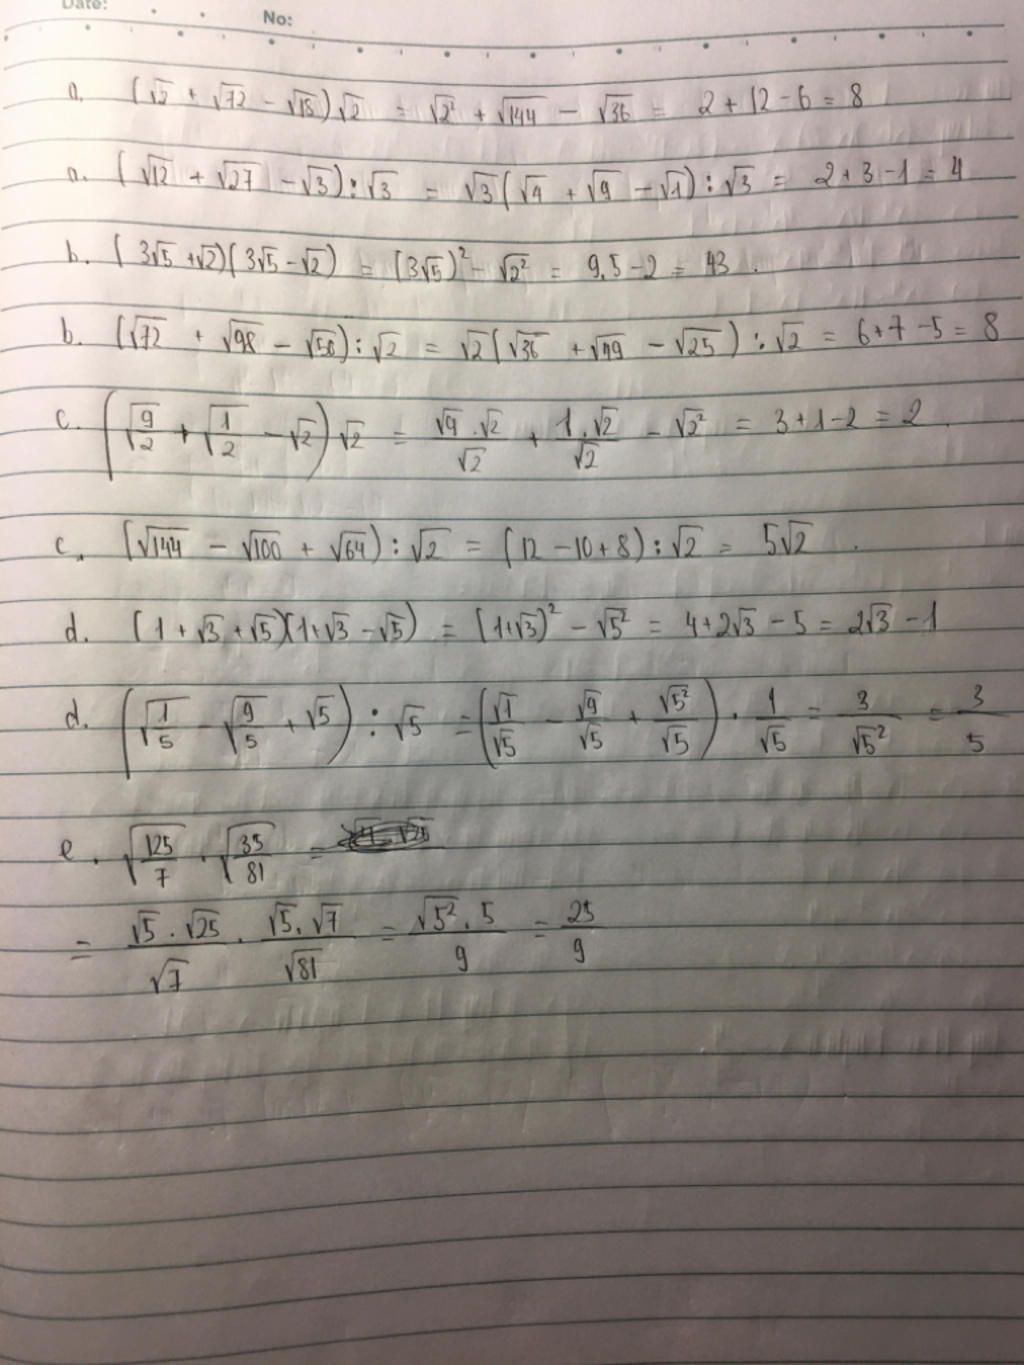 Date:
No:
a. (√2 + √72 - √18)√2 = √2² + √144 - √36 = 2 + 12 - 6 = 8
a. (√12 + √27 - √3) : √3 = √3(√4 + √9 - √1) : √3 = 2 + 3 - 1 = 4
b. (3√5 + √2)(3√5 - √2) = (3√5)² - √2² = 9.5 - 2 = 43.
b. (√72 + √98 - √50) : √2 = √2(√36 + √49 - √25) : √2 = 6 + 7 - 5 = 8
c. (√(9/2) + √(1/2) - √2)√2 = (√9 . √2)/√2 + (1 . √2)/√2 - √2² = 3 + 1 - 2 = 2.
c. (√144 - √100 + √64) : √2 = (12 - 10 + 8) : √2 = 5√2.
d. (1 + √3 + √5)(1 + √3 - √5) = (1 + √3)² - √5² = 4 + 2√3 - 5 = 2√3 - 1
d. (√(1/5) - √(9/5) + √5) : √5 = (√1/√5 - √9/√5 + √5²/√5) . 1/√5 = 3/√5² = 3/5
e. √(125/7) . √(35/81) =
= (√5 . √25)/√7 . (√5 . √7)/√81 = (√5² . 5)/9 = 25/9